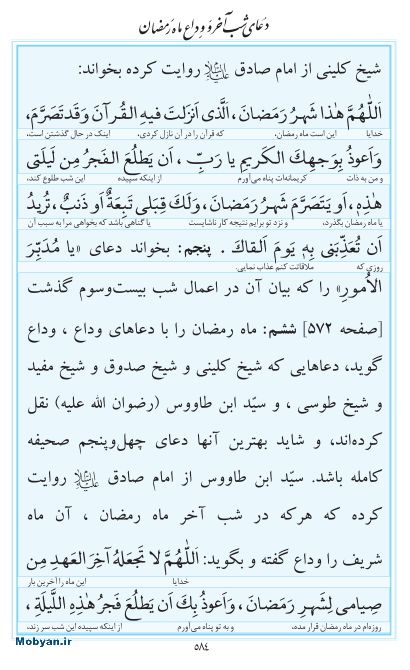 دعای شب آخر و وداع ماه رمضان
شیخ کلینی از امام صادق علیه‌السلام روایت کرده بخواند:
اَللّٰهُمَّ هٰذا شَهرُ رَمَضانَ، الَّذی اَنزَلتَ فیهِ القُرآنَ وَقَد تَصَرَّمَ،
خدایا این است ماه رمضان، که قرآن را در آن نازل کردی، اینک در حال گذشتن است،
وَاَعوذُ بِوَجهِكَ الکَریمِ یا رَبِّ، اَن یَطلُعَ الفَجرُ مِن لَیلَتی
و من به ذات کریمانه‌ات پناه می‌آورم از اینکه سپیده این شب طلوع کند،
هٰذِهِ، اَو یَتَصَرَّمَ شَهرُ رَمَضانَ، وَلَكَ قِبَلی تَبِعَةٌ اَو ذَنبٌ، تُریدُ
یا ماه رمضان بگذرد، و نزد تو برایم نتیجه کار ناشایست یا گناهی باشد که بخواهی مرا به سبب آن
اَن تُعَذِّبَنی بِهِ یَومَ اَلقاكَ. پنجم: بخواند دعای «یا مُدَبِّرَ
روزی که ملاقاتت کنم عذاب نمایی.
الاُمورِ» را که بیان آن در اعمال شب بیست‌وسوم گذشت
[صفحه ۵۷۲] ششم: ماه رمضان را با دعاهای وداع، وداع
گوید، دعاهایی که شیخ کلینی و شیخ صدوق و شیخ مفید
و شیخ طوسی، و سیّد ابن طاووس (رضوان الله علیه) نقل
کرده‌اند، و شاید بهترین آنها دعای چهل‌وپنجم صحیفه
کامله باشد. سیّد ابن طاووس از امام صادق علیه‌السلام روایت
کرده که هرکه در شب آخر ماه رمضان، آن ماه
شریف را وداع گفته و بگوید: اَللّٰهُمَّ لا تَجعَلهُ آخِرَ العَهدِ مِن
خدایا این ماه را آخرین بار
صِیامی لِشَهرِ رَمَضانَ، وَاَعوذُ بِكَ اَن یَطلُعَ فَجرُ هٰذِهِ اللَّیلَةِ،
روزه‌ام در ماه رمضان قرار مده، و به تو پناه می‌آورم از اینکه سپیده این شب سر زند،
Mobyan.ir
۵۸۴